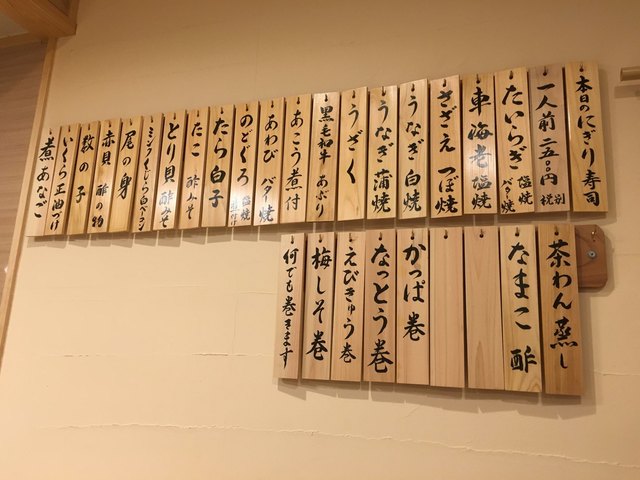 本日のにぎり寿司
一人前 二五〇円 税別
たいらぎ 塩焼 バター焼
車海老 塩焼
さざえ つぼ焼
うなぎ 白焼
うなぎ 蒲焼
うざく
黒毛和牛 あぶり
あこう煮付
あわび バター焼
のどぐろ 塩焼 煮付
たら白子
たこ 酢みそ
とり貝 酢みそ
ミンククジラ白ベーコン
尾の身
赤貝 酢の物
数の子
いくら正油づけ
煮あなご
茶わん蒸し
なまこ 酢
かっぱ巻
なっとう巻
えびきゅう巻
梅しそ巻
何でも巻きます